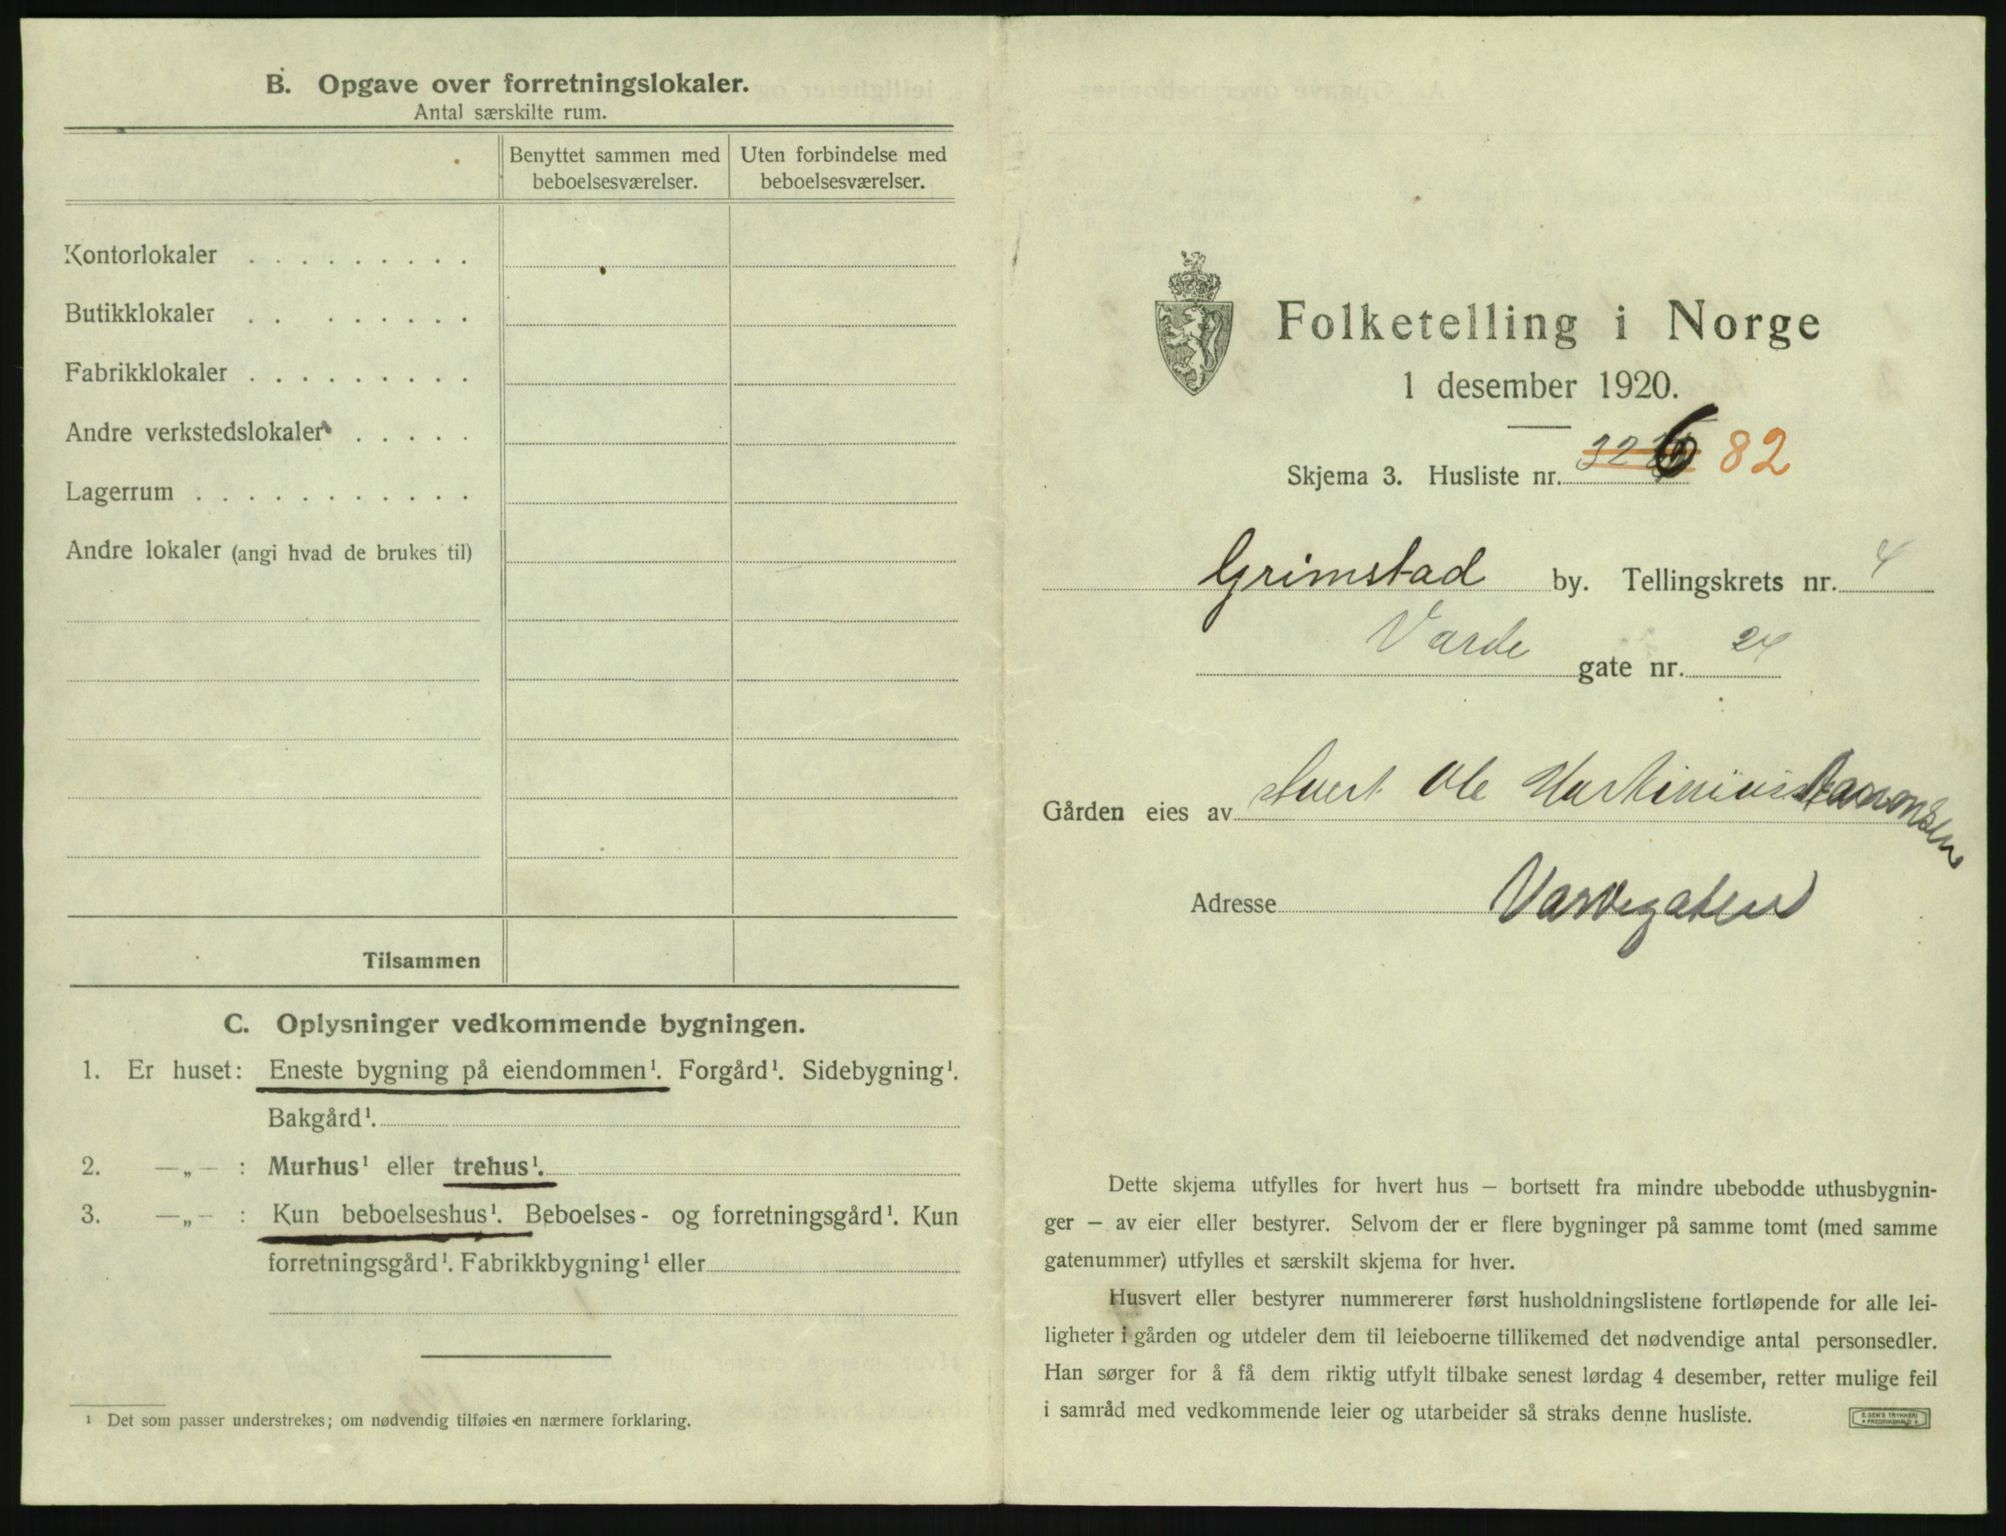 B. Opgave over forretningslokaler.
Antal særskilte rum.
Benyttet sammen med beboelsesværelser.
Uten forbindelse med beboelsesværelser.
Kontorlokaler . . . . . . . . .
Butikklokaler . . . . . . . .
Fabrikklokaler . . . . . . . . .
Andre verkstedslokaler . . . . .
Lagerrum . . . . . . . . . . .
Andre lokaler (angi hvad de brukes til)
Tilsammen
C. Oplysninger vedkommende bygningen.
1. Er huset: Eneste bygning på eiendommen¹. Forgård¹. Sidebygning¹.
Bakgård¹.
2. —„— : Murhus¹ eller trehus¹.
3. —„— : Kun beboelseshus¹. Beboelses- og forretningsgård¹. Kun
forretningsgård¹. Fabrikkbygning¹ eller
¹ Det som passer understrekes; om nødvendig tilføies en nærmere forklaring.
Folketelling i Norge
1 desember 1920.
Skjema 3. Husliste nr. 6 82
Grimstad by. Tellingskrets nr. 4
Varde gate nr. 24
Gården eies av Ole
Adresse Vardegaten
Dette skjema utfylles for hvert hus — bortsett fra mindre ubebodde uthusbygnin-
ger — av eier eller bestyrer. Selvom der er flere bygninger på samme tomt (med samme
gatenummer) utfylles et særskilt skjema for hver.
Husvert eller bestyrer nummererer først husholdningslistene fortløpende for alle lei-
ligheter i gården og utdeler dem til leieboerne tillikemed det nødvendige antal personsedler.
Han sørger for å få dem riktig utfylt tilbake senest lørdag 4 desember, retter mulige feil
i samråd med vedkommende leier og utarbeider så straks denne husliste.